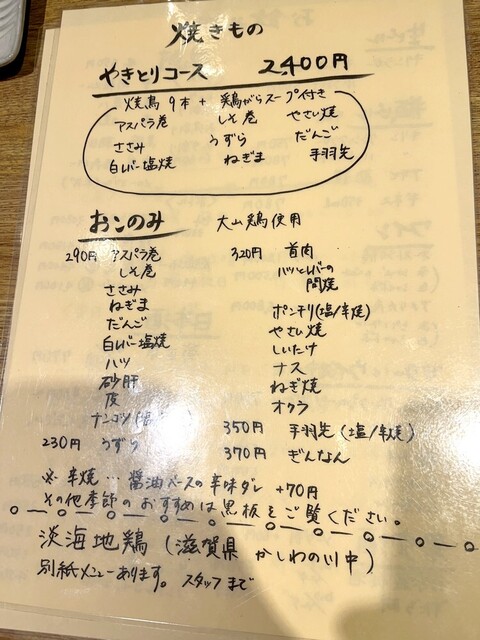 焼きもの
やきとりコース 2,400円
焼鳥9本 + 鶏がらスープ付き
アスパラ巻 しそ巻 やさい焼
ささみ うずら だんご
白レバー塩焼 ねぎま 手羽先
おこのみ 大山鶏使用
290円 アスパラ巻 320円 首肉
しそ巻 ハツとレバーの
ささみ 間焼
ねぎま ボンチリ(塩/辛焼)
だんご やさい焼
白レバー塩焼 しいたけ
ハツ ナス
砂肝 ねぎ焼
皮 オクラ
ナンコツ(塩 350円 手羽先(塩/辛焼)
230円 うずら 370円 ぎんなん
※辛焼…醤油ベースの辛味ダレ +70円
その他季節のおすすめは黒板をご覧ください。
淡海地鶏(滋賀県 かしわの川中)
別紙メニューあります。スタッフまで